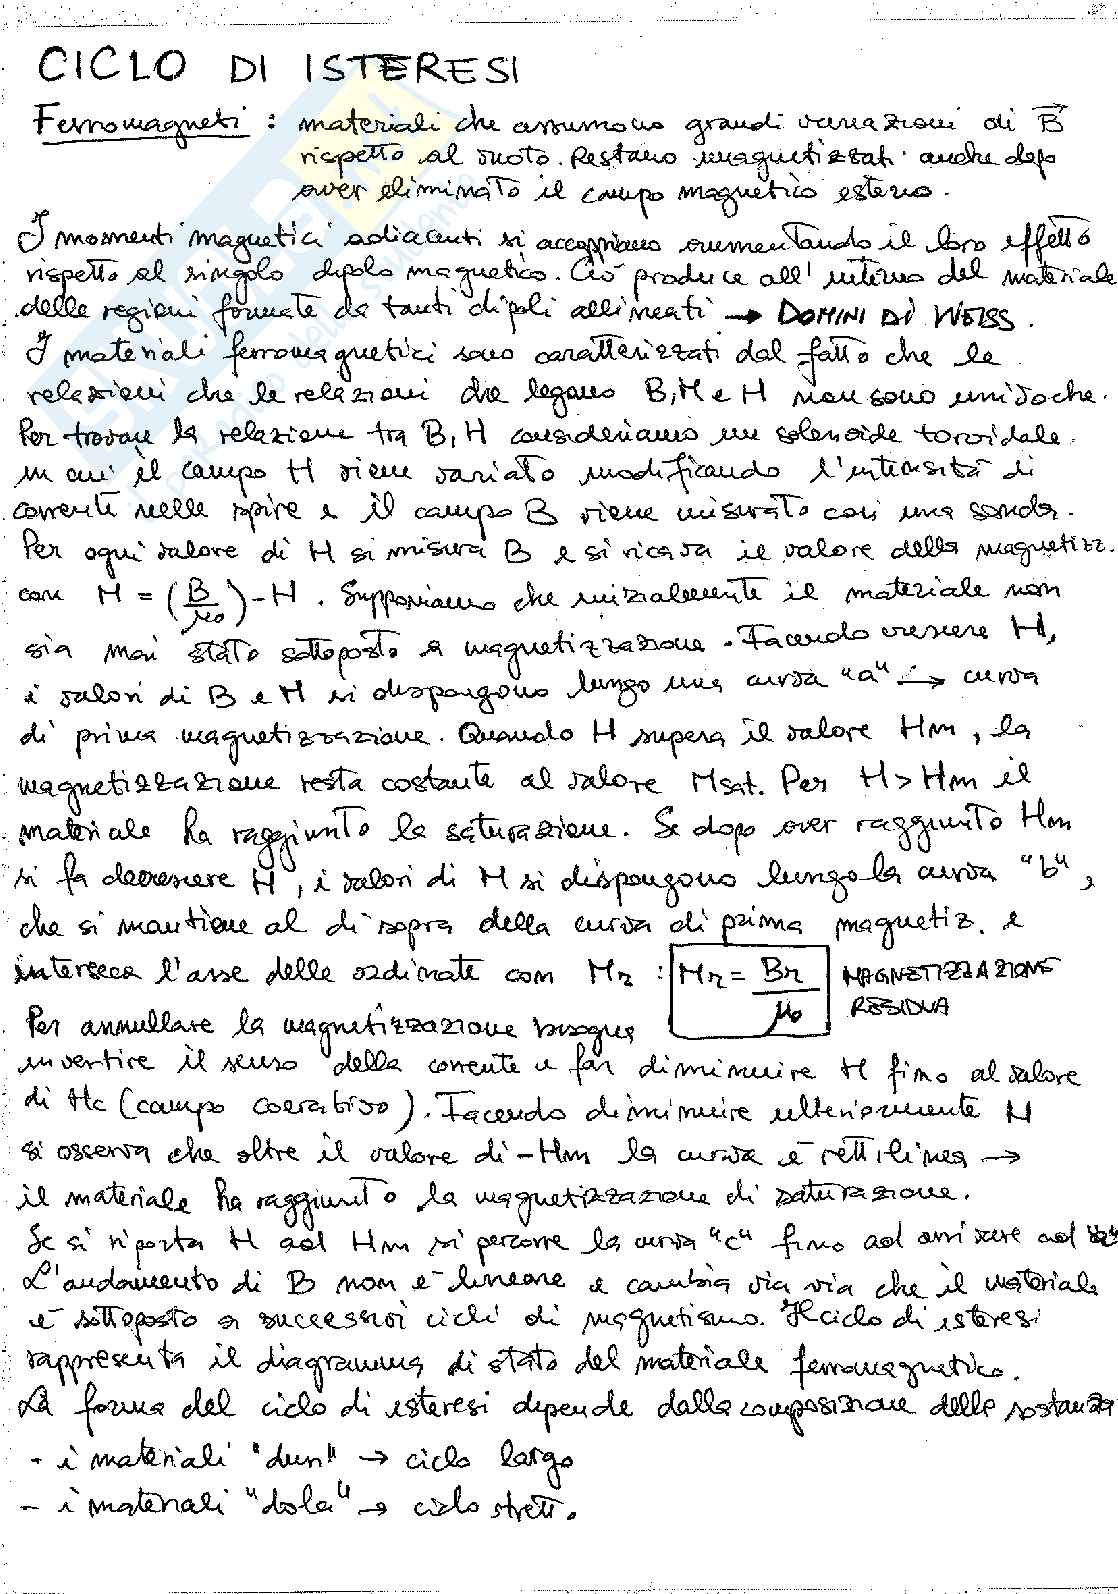 CICLO DI ISTERESI
Ferromagneti : materiali che assumono grandi variazioni di B
rispetto al vuoto. Restano magnetizzati anche dopo
aver eliminato il campo magnetico esterno.
I momenti magnetici adiacenti si accoppiano aumentando il loro effetto
rispetto al singolo dipolo magnetico. Ciò produce all'interno del materiale
delle regioni formate da tanti dipoli allineati → DOMINI DI WEISS.
I materiali ferromagnetici sono caratterizzati dal fatto che le
relazioni che le relazioni che legano B, M e H non sono univoche.
Per trovare la relazione tra B, H consideriamo un solenoide toroidale
in cui il campo H viene variato modificando l'intensità di
corrente nelle spire e il campo B viene misurato con una sonda.
Per ogni valore di H si misura B e si ricava il valore della magnetizz.
con M = (B/μ0) - H. Supponiamo che inizialmente il materiale non
sia mai stato sottoposto a magnetizzazione. Facendo crescere H,
i valori di B e M si dispongono lungo una curva "a" → curva
di prima magnetizzazione. Quando H supera il valore Hm, la
magnetizzazione resta costante al valore Msat. Per H > Hm il
materiale ha raggiunto la saturazione. Se dopo aver raggiunto Hm
si fa decrescere H, i valori di M si dispongono lungo la curva "b",
che si mantiene al di sopra della curva di prima magnetiz. e
interseca l'asse delle ordinate con Mr : Mr = Br/μ0 MAGNETIZZAZIONE
RESIDUA
Per annullare la magnetizzazione bisogna
invertire il senso della corrente e far diminuire H fino al valore
di Hc (campo coercitivo). Facendo diminuire ulteriormente H
si osserva che oltre il valore di -Hm la curva è rettilinea →
il materiale ha raggiunto la magnetizzazione di saturazione.
Se si riporta H ad Hm si percorre la curva "c" fino ad arrivare ad
L'andamento di B non è lineare e cambia via via che il materiale
è sottoposto a successivi cicli di magnetismo. Il ciclo di isteresi
rappresenta il diagramma di stato del materiale ferromagnetico.
La forma del ciclo di isteresi dipende dalla composizione della sostanza
- i materiali "duri" → ciclo largo
- i materiali "dolci" → ciclo strett.